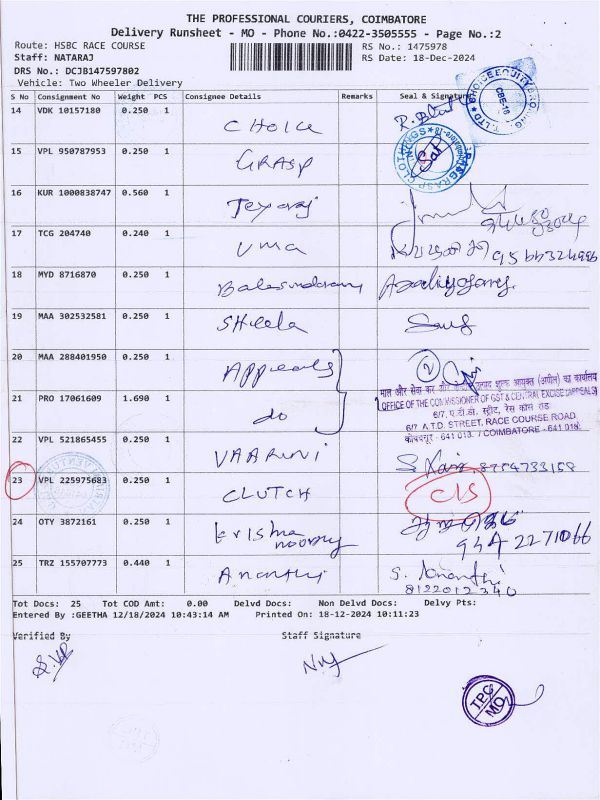 THE PROFESSIONAL COURIERS, COIMBATORE
Delivery Runsheet - MO - Phone No.:0422-3505555 - Page No.:2
Route: HSBC RACE COURSE RS No.: 1475978
Staff: NATARAJ RS Date: 18-Dec-2024
DRS No.: DCJB147597802
Vehicle: Two Wheeler Delivery
S No Consignment No Weight PCS Consignee Details Remarks Seal & Signature
14 VDK 10157180 0.250 1 CHOICE
CHOICE EQUITY BROKING PVT. LTD CBE-18
15 VPL 950787953 0.250 1 GRASP
GRASP CLOTHINGS
16 KUR 1000838747 0.560 1 Jeyaraj
17 TCG 204740 0.240 1 UMA
18 MYD 8716870 0.250 1
19 MAA 302532581 0.250 1 Sheela
20 MAA 288401950 0.250 1 Appeals 2
माल और सेवा कर और केंद्रीय उत्पाद शुल्क आयुक्त (अपील) का कार्यालय
OFFICE OF THE COMMISSIONER OF GST & CENTRAL EXCISE (APPEALS)
6/7, ए.टी.डी. स्ट्रीट, रेस कोर्स रोड
6/7 A.T.D. STREET, RACE COURSE ROAD
कोयंबत्तूर - 641 018. / COIMBATORE - 641 018.
21 PRO 17061609 1.690 1 do
22 VPL 521865455 0.250 1 VAARUNI 8754733158
23 VPL 225975683 0.250 1 CLUTCH C/S
24 OTY 3872161 0.250 1 krishna moorthy
944 2271066
25 TRZ 155707773 0.440 1 Ananthi S. Ananthi
8122012340
Tot Docs: 25 Tot COD Amt: 0.00 Delvd Docs: Non Delvd Docs: Delvy Pts:
Entered By :GEETHA 12/18/2024 10:43:14 AM Printed On: 18-12-2024 10:11:23
Verified By Staff Signature
TPC
MO